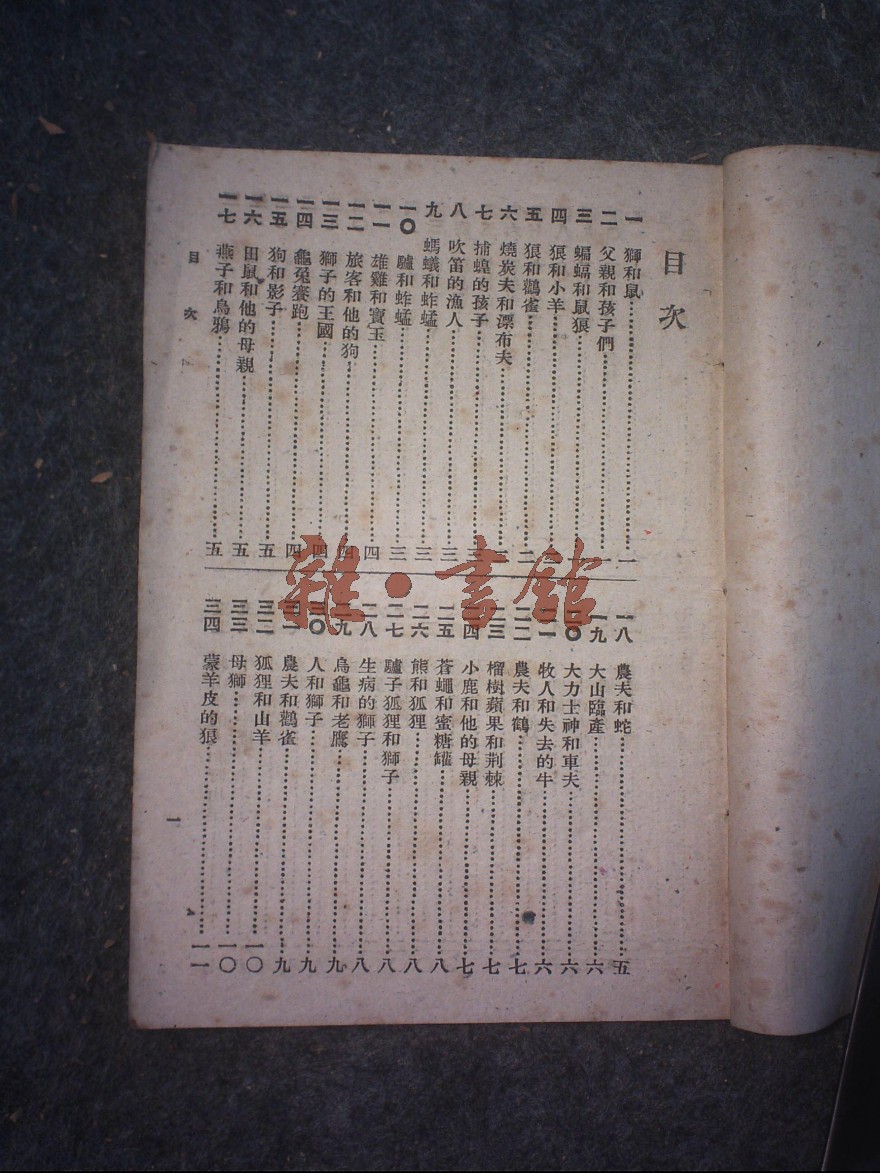 目次
一 獅和鼠 一
二 父親和孩子們 一
三 蝙蝠和鼠狼
四 狼和小羊
五 狼和鸛雀 二
六 燒炭夫和漂布夫
七 捕蝗的孩子 三
八 吹笛的漁人 三
九 螞蟻和蚱蜢 三
一〇 驢和蚱蜢 三
一一 雄雞和寶玉 四
一二 旅客和他的狗 四
一三 獅子的王國 四
一四 龜兔賽跑 四
一五 狗和影子 五
一六 田鼠和他的母親 五
一七 燕子和烏鴉 五
一八 農夫和蛇 五
一九 大山臨產 六
二〇 大力士神和車夫 六
二一 牧人和失去的牛 六
二二 農夫和鶴 七
二三 榴樹蘋果和荆棘 七
二四 小鹿和他的母親 七
二五 蒼蠅和蜜糖罐 八
二六 熊和狐狸 八
二七 驢子狐狸和獅子 八
二八 生病的獅子 八
二九 烏龜和老鷹 九
三〇 人和獅子 九
三一 農夫和鸛雀 九
三二 狐狸和山羊 一〇
三三 母獅 一〇
三四 蒙羊皮的狼 一一
目次
一
雜·書館